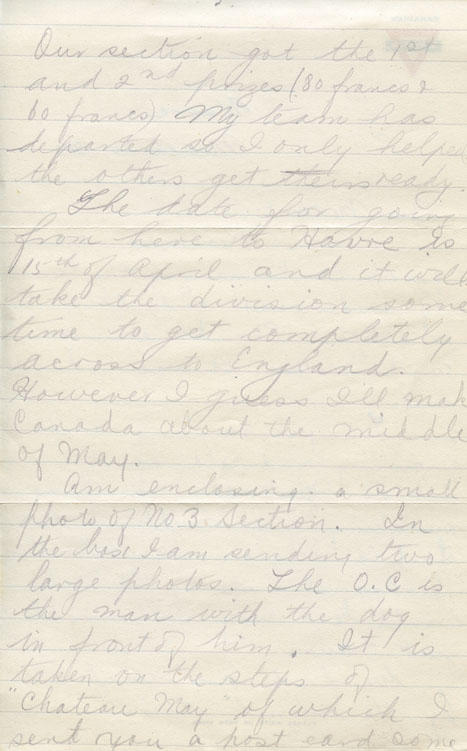 Our section got the 1st
and 2nd prizes (80 francs &
60 francs) My team has
departed so I only helped
the others get theirs ready.
The date for going
from here to Havre is
15th of April and it will
take the division some
time to get completely
across to England.
However I guess I'll mak
Canada about the middle
of May.
Am enclosing a small
photo of No 3 Section. In
the box I am sending two
large photos. The O.C is
the man with the dog
in front of him. It is
taken on the steps of
"Chateau May" of which I
sent you a post card some